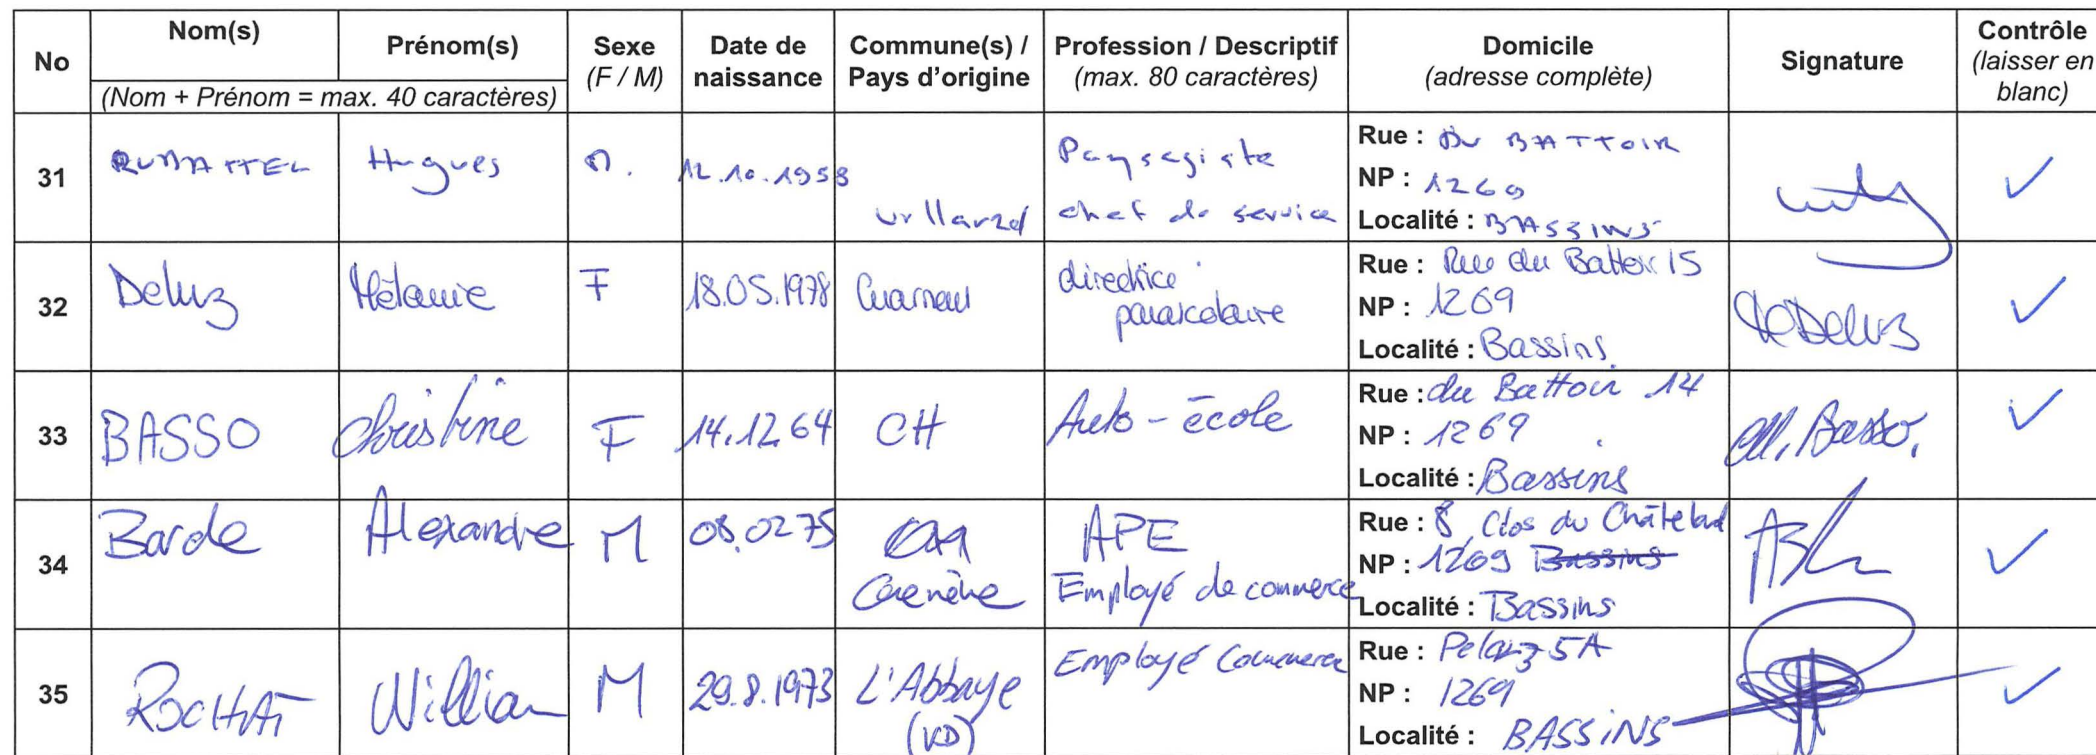 No
Nom(s)
Prénom(s)
(Nom + Prénom = max. 40 caractères)
Sexe
(F / M)
Date de
naissance
Commune(s) /
Pays d'origine
Profession / Descriptif
(max. 80 caractères)
Domicile
(adresse complète)
Signature
Contrôle
(laisser en
blanc)
31
RUMATTEL
Hugues
M.
12.10.1958
Villarzel
Paysagiste
chef de service
Rue : Du BATTOIR
NP : 1269
Localité : BASSINS
32
Deluz
Mélanie
F
18.05.1978
Cuarnens
directrice
parascolaire
Rue : Rue du Battoir 15
NP : 1269
Localité : Bassins
Deluz
33
BASSO
Christine
F
14.12.64
CH
Auto-école
Rue : du Battoir 14
NP : 1269
Localité : Bassins
Basso.
34
Barde
Alexandre
M
08.02.75
Genève
APE
Employé de commerce
Rue : 8, Clos du Châtelard
NP : 1269 Bassins
Localité : Bassins
35
ROCHAT
William
M
29.8.1973
L'Abbaye
(VD)
Employé Commerce
Rue : Pelaz 5A
NP : 1269
Localité : BASSINS